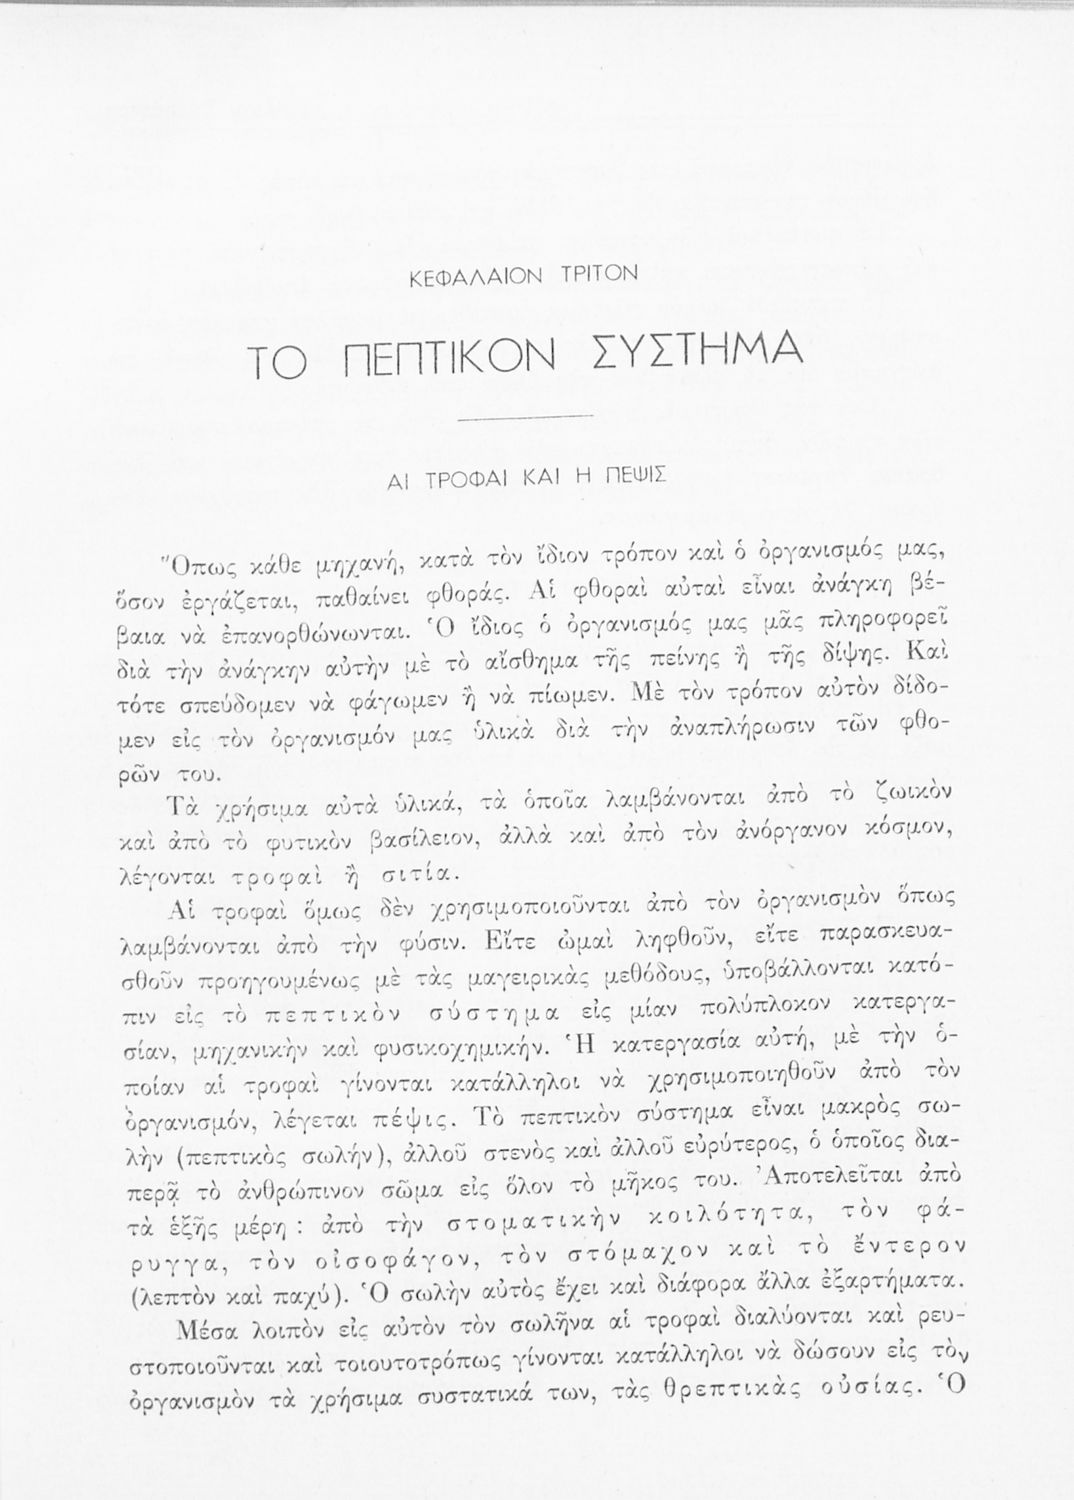 ΚΕΦΑΛΑΙΟΝ ΤΡΙΤΟΝ
ΤΟ ΠΕΠΤΙΚΟΝ ΣΥΣΤΗΜΑ
ΑΙ ΤΡΟΦΑΙ ΚΑΙ Η ΠΕΨΙΣ
Ὅπως κάθε μηχανή, κατὰ τὸν ἴδιον τρόπον καὶ ὁ ὀργανισμός μας,
ὅσον ἐργάζεται, παθαίνει φθοράς. Αἱ φθοραὶ αὐταὶ εἶναι ἀνάγκη βέ-
βαια νὰ ἐπανορθώνωνται. Ὁ ἴδιος ὁ ὀργανισμός μας μᾶς πληροφορεῖ
διὰ τὴν ἀνάγκην αὐτὴν μὲ τὸ αἴσθημα τῆς πείνης ἢ τῆς δίψης. Καὶ
τότε σπεύδομεν νὰ φάγωμεν ἢ νὰ πίωμεν. Μὲ τὸν τρόπον αὐτὸν δίδο-
μεν εἰς τὸν ὀργανισμόν μας ὑλικὰ διὰ τὴν ἀναπλήρωσιν τῶν φθο-
ρῶν του.
Τὰ χρήσιμα αὐτὰ ὑλικά, τὰ ὁποῖα λαμβάνονται ἀπὸ τὸ ζωικὸν
καὶ ἀπὸ τὸ φυτικὸν βασίλειον, ἀλλὰ καὶ ἀπὸ τὸν ἀνόργανον κόσμον,
λέγονται τροφαὶ ἢ σιτία.
Αἱ τροφαὶ ὅμως δὲν χρησιμοποιοῦνται ἀπὸ τὸν ὀργανισμὸν ὅπως
λαμβάνονται ἀπὸ τὴν φύσιν. Εἴτε ὠμαὶ ληφθοῦν, εἴτε παρασκευα-
σθοῦν προηγουμένως μὲ τὰς μαγειρικὰς μεθόδους, ὑποβάλλονται κατό-
πιν εἰς τὸ πεπτικὸν σύστημα εἰς μίαν πολύπλοκον κατεργα-
σίαν, μηχανικὴν καὶ φυσικοχημικήν. Ἡ κατεργασία αὐτή, μὲ τὴν ὁ-
ποίαν αἱ τροφαὶ γίνονται κατάλληλοι νὰ χρησιμοποιηθοῦν ἀπὸ τὸν
ὀργανισμόν, λέγεται πέψις. Τὸ πεπτικὸν σύστημα εἶναι μακρὸς σω-
λὴν (πεπτικὸς σωλήν), ἀλλοῦ στενὸς καὶ ἀλλοῦ εὐρύτερος, ὁ ὁποῖος δια-
περᾷ τὸ ἀνθρώπινον σῶμα εἰς ὅλον τὸ μῆκος του. Ἀποτελεῖται ἀπὸ
τὰ ἑξῆς μέρη : ἀπὸ τὴν στοματικὴν κοιλότητα, τὸν φά-
ρυγγα, τὸν οἰσοφάγον, τὸν στόμαχον καὶ τὸ ἔντερον
(λεπτὸν καὶ παχύ). Ὁ σωλὴν αὐτὸς ἔχει καὶ διάφορα ἄλλα ἐξαρτήματα.
Μέσα λοιπὸν εἰς αὐτὸν τὸν σωλῆνα αἱ τροφαὶ διαλύονται καὶ ρευ-
στοποιοῦνται καὶ τοιουτοτρόπως γίνονται κατάλληλοι νὰ δώσουν εἰς τὸν
ὀργανισμὸν τὰ χρήσιμα συστατικά των, τὰς θρεπτικὰς οὐσίας. Ὁ